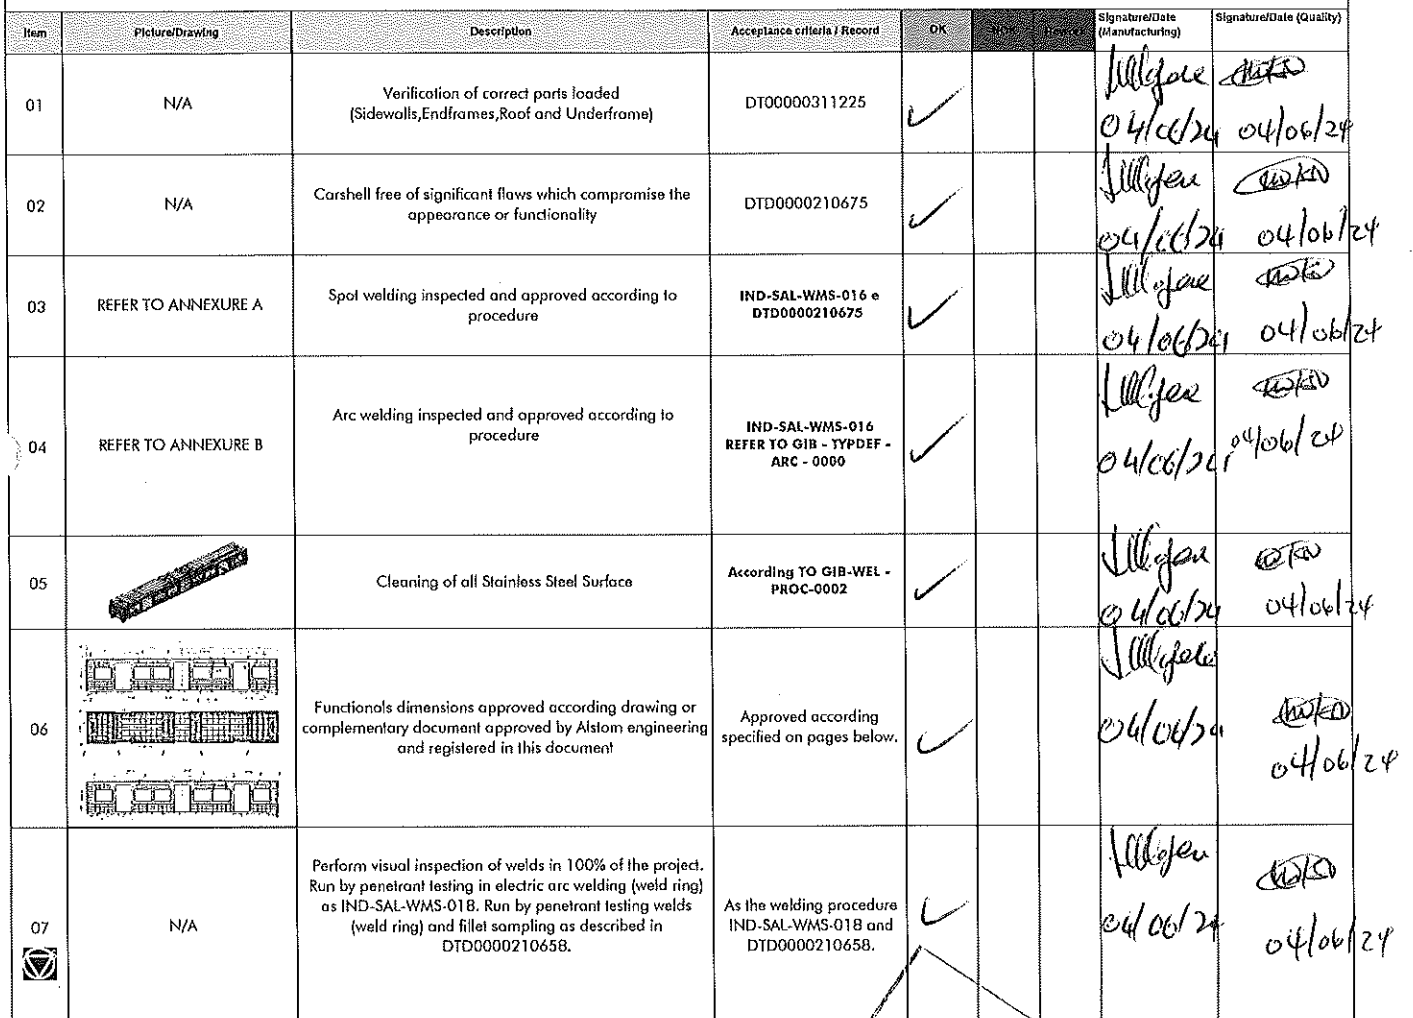 Item Picture/Drawing Description Acceptance criteria / Record OK NOK Rework Signature/Date (Manufacturing) Signature/Date (Quality)
01 N/A Verification of correct parts loaded
(Sidewalls,Endframes,Roof and Underframe) DT00000311225 ✓
04/06/24 04/06/24
02 N/A Carshell free of significant flaws which compromise the
appearance or functionality DTD0000210675 ✓
04/06/24 04/06/24
03 REFER TO ANNEXURE A Spot welding inspected and approved according to
procedure IND-SAL-WMS-016 e
DTD0000210675 ✓
04/06/24 04/06/24
04 REFER TO ANNEXURE B Arc welding inspected and approved according to
procedure IND-SAL-WMS-016
REFER TO GIB - TYPDEF -
ARC - 0000 ✓
04/06/24 04/06/24
05 Cleaning of all Stainless Steel Surface According TO GIB-WEL -
PROC-0002 ✓
04/06/24 04/06/24
06 Functionals dimensions approved according drawing or
complementary document approved by Alstom engineering
and registered in this document Approved according
specified on pages below. ✓
04/06/24 04/06/24
07 N/A Perform visual inspection of welds in 100% of the project.
Run by penetrant testing in electric arc welding (weld ring)
as IND-SAL-WMS-018. Run by penetrant testing welds
(weld ring) and fillet sampling as described in
DTD0000210658. As the welding procedure
IND-SAL-WMS-018 and
DTD0000210658. ✓
04/06/24 04/06/24